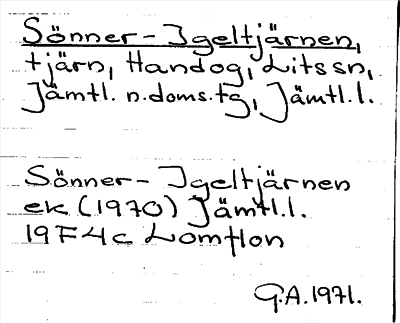 Sönner-Igeltjärnen,
tjärn, Handog, Lits sn,
Jämtl. n. doms. tg, Jämtl. l.
Sönner-Igeltjärnen
ek (1970) Jämtl. l.
19F4c Lomflon
G.A. 1971.